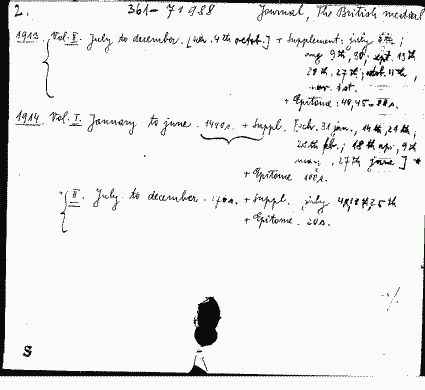 2. 361-71988 Journal, The British medical
1913. Vol. II. July to december. [4th octob.] + Supplement: july 5th;
aug 9th, 30; sept. 13th
20th, 27th; 11th,
1st.
+ Epitome: 40, 45
1914. Vol. I. January to june. 1440s. + Suppl. [31 jan., 14th, 21th,
feb.; 18th apr., 9th
27th june] +
+ Epitome 100s.
II. July to december. 176s. + Suppl. july 4, 18th, 25th
+ Epitome. 20s.
S